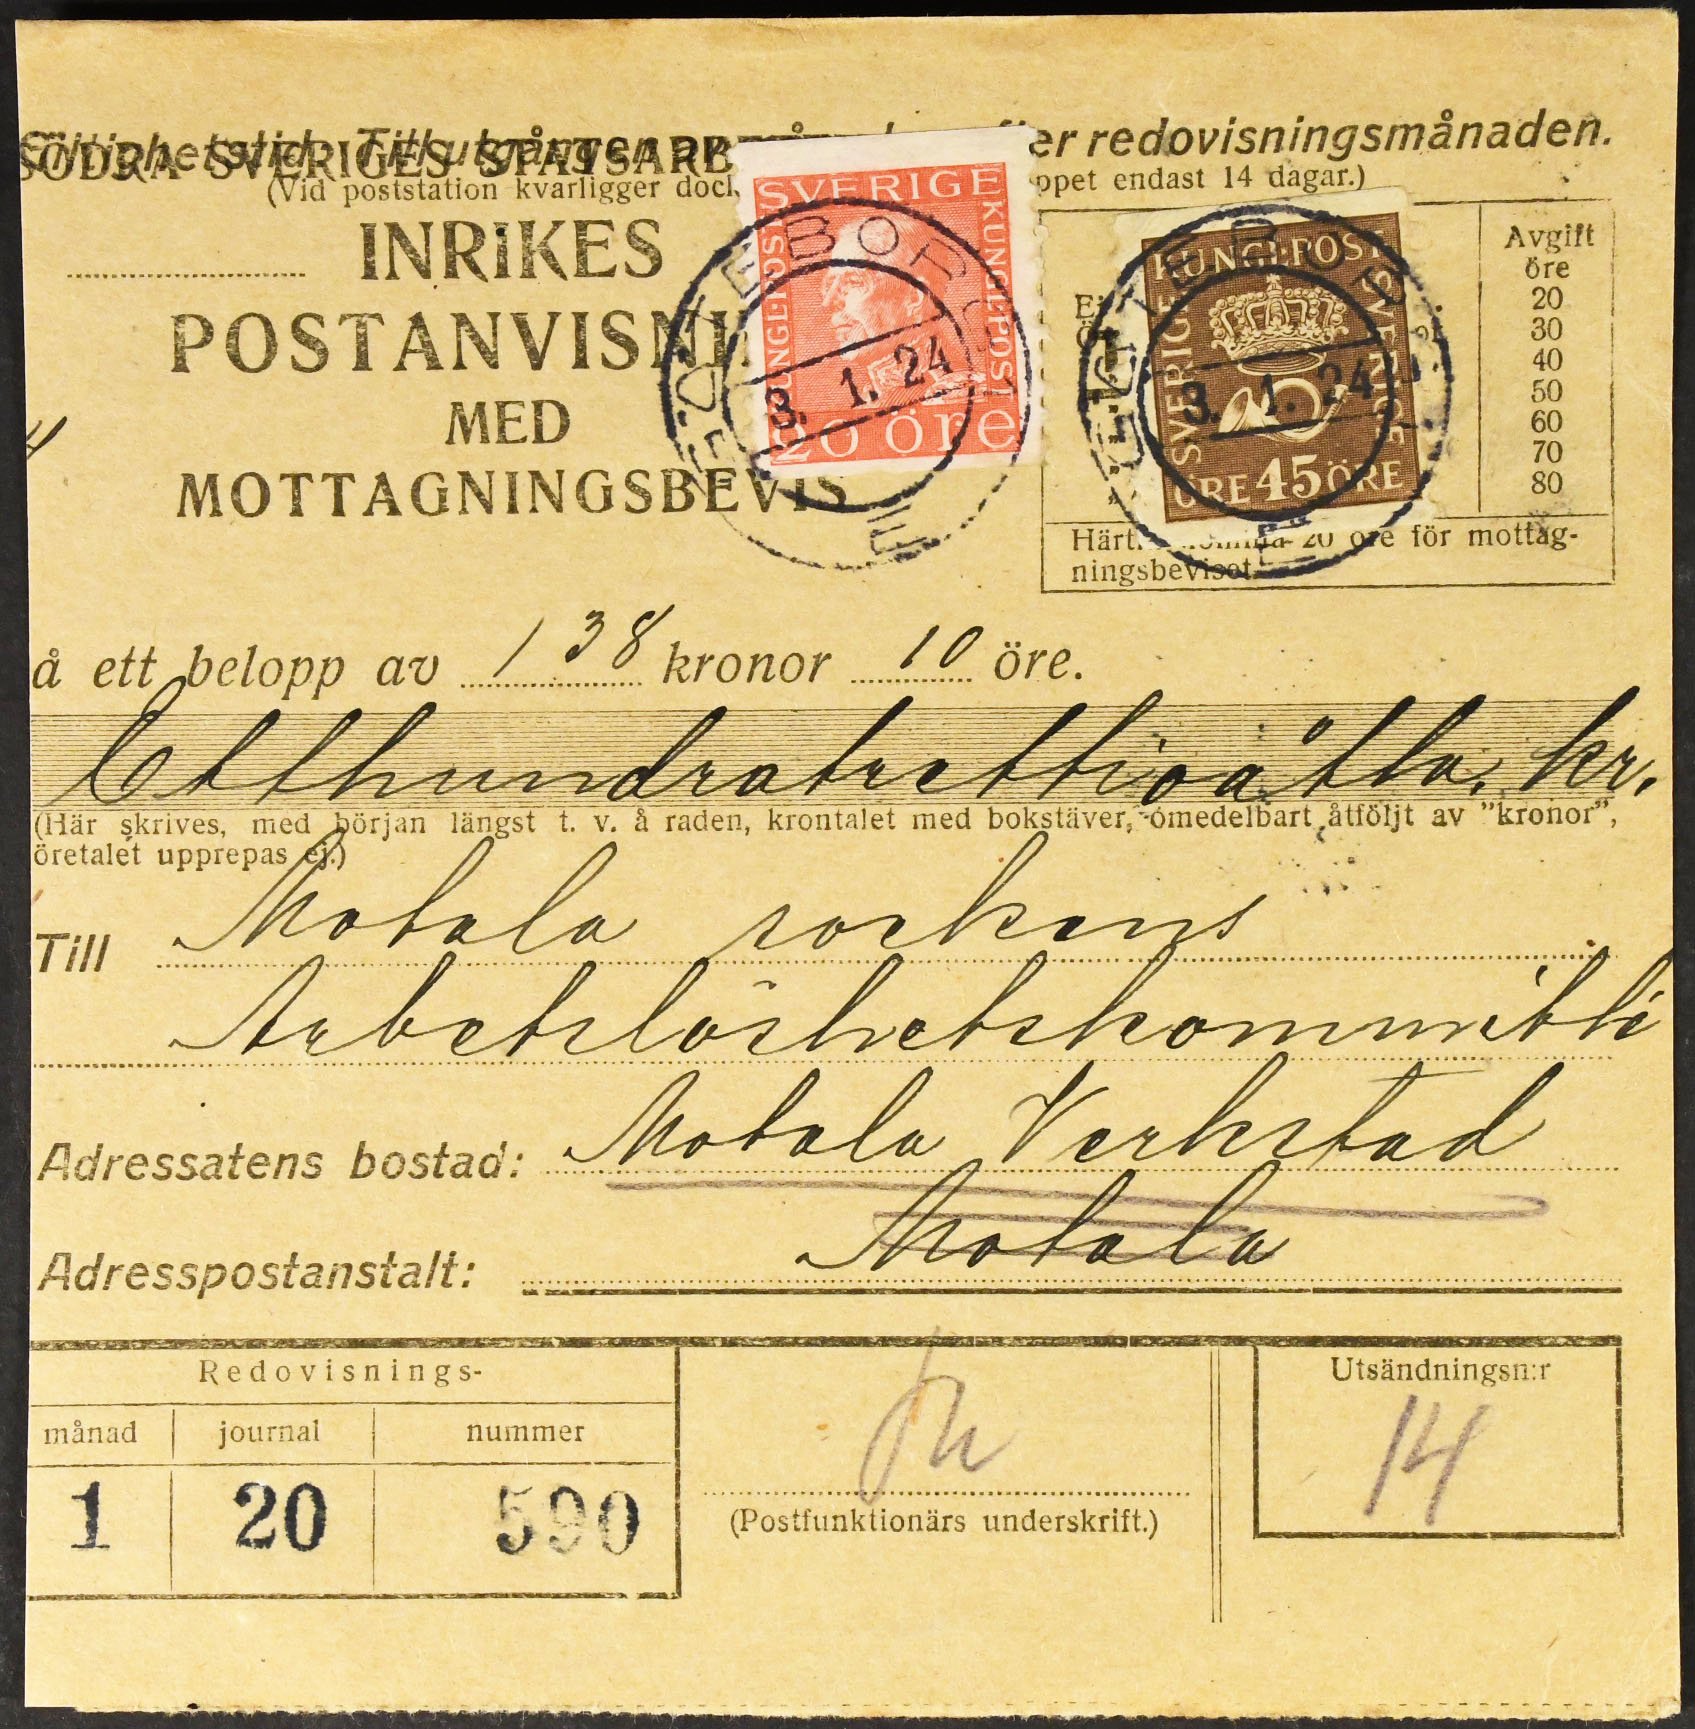 Giltighetstid: Till utgången av er redovisningsmånaden.
SÖDRA SVERIGES STATSARB
(Vid poststation kvarligger ppet endast 14 dagar.)
INRIKES
POSTANVISNI
MED
MOTTAGNINGSBEVIS
SVERIGE
KUNGL:POST
KUNGL:POST
20 öre
GÖTEBORG
3. 1. 24
KUNGL:POST
SVERIGE
SVERIGE
ÖRE 45 ÖRE
GÖTEBORG
3. 1. 24
Avgift
öre
20
30
40
50
60
70
80
20 öre för mottag-
ningsbeviset.
å ett belopp av 138 kronor 10 öre.
Etthundratrettioåtta. kr.
(Här skrives, med början längst t. v. å raden, krontalet med bokstäver, omedelbart åtföljt av "kronor",
öretalet upprepas ej.)
Till Motala sockens
Arbetslöshetskommitté
Adressatens bostad: Motala Verkstad
Adresspostanstalt: Motala
Redovisnings-
månad journal nummer
1 20 590
(Postfunktionärs underskrift.)
Utsändningsn:r
14